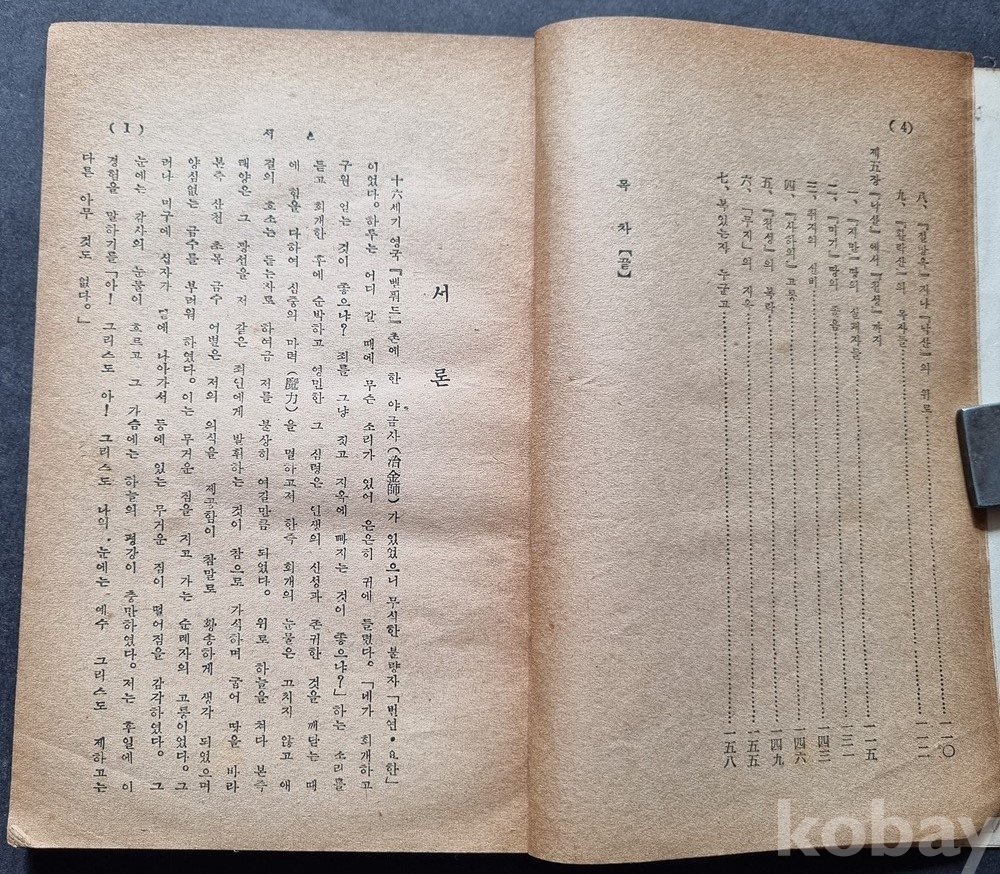 (4)
八、『절망옥』지나『낙산』의 위로……一一〇
九、『환락산』의 목자들……一一二
제五장『낙산』에서『천성』까지
一、『자만』땅의 실패자들……一一五
二、『미기』땅의 졸음……一三一
三、취지의 신비……一四三
四、『사하의』고통……一四六
五、『천성』의 목락……一四九
六、『무지』의 지옥……一五五
七、복있는자 누군고……一五八
목 차【끝】
서 론
十六세기 영국『벳풔드』촌에 한 야금사(冶金師)가 있었으니 무식한 불량자「번연•요한」
이었다。하루는 어디 갈 때에 무슨 소리가 있어 은은히 귀에 들렸다。「네가 회개하고
구원 얻는 것이 좋으냐? 죄를 그냥 짓고 지옥에 빠지는 것이 좋으냐?」하는 소리를
듣고 회개한 후에 순박하고 영민한 그 심령은 인생의 신성과 존귀한 것을 깨닫는 때
에 힘을 다하여 심중의 마력(魔力)을 멸하고저 한즉 회개의 눈물은 그치지 않고 애
걸의 호소는 듣는사로 하여금 저를 불상히 여길만큼 되었다。위로 하늘을 쳐다 본즉
태양은 그 광선을 저 같은 죄인에게 발휘하는 것이 참으로 가석하며 굽어 땅을 바라
본즉 산천 초목 금수 어별은 저의 의식을 제공함이 참말로 황송하게 생각 되었으며
양심없는 금수를 부더워 하였다。이는 무거운 짐을 지고 가는 순례자의 고통이었다。그
러나 미구에 십자가 밑에 나아가서 등에 있는 무거운 짐이 떨어짐을 감각하였다。그
눈에는 감사의 눈물이 흐르고 그 가슴에는 하늘의 평강이 충만하였다。저는 후일에 이
경험을 말하기를「아! 그리스도 아! 그리스도 나의 눈에는 예수 그리스도 제하고는
다른 아무 것도 없다。」
서 론
(1)